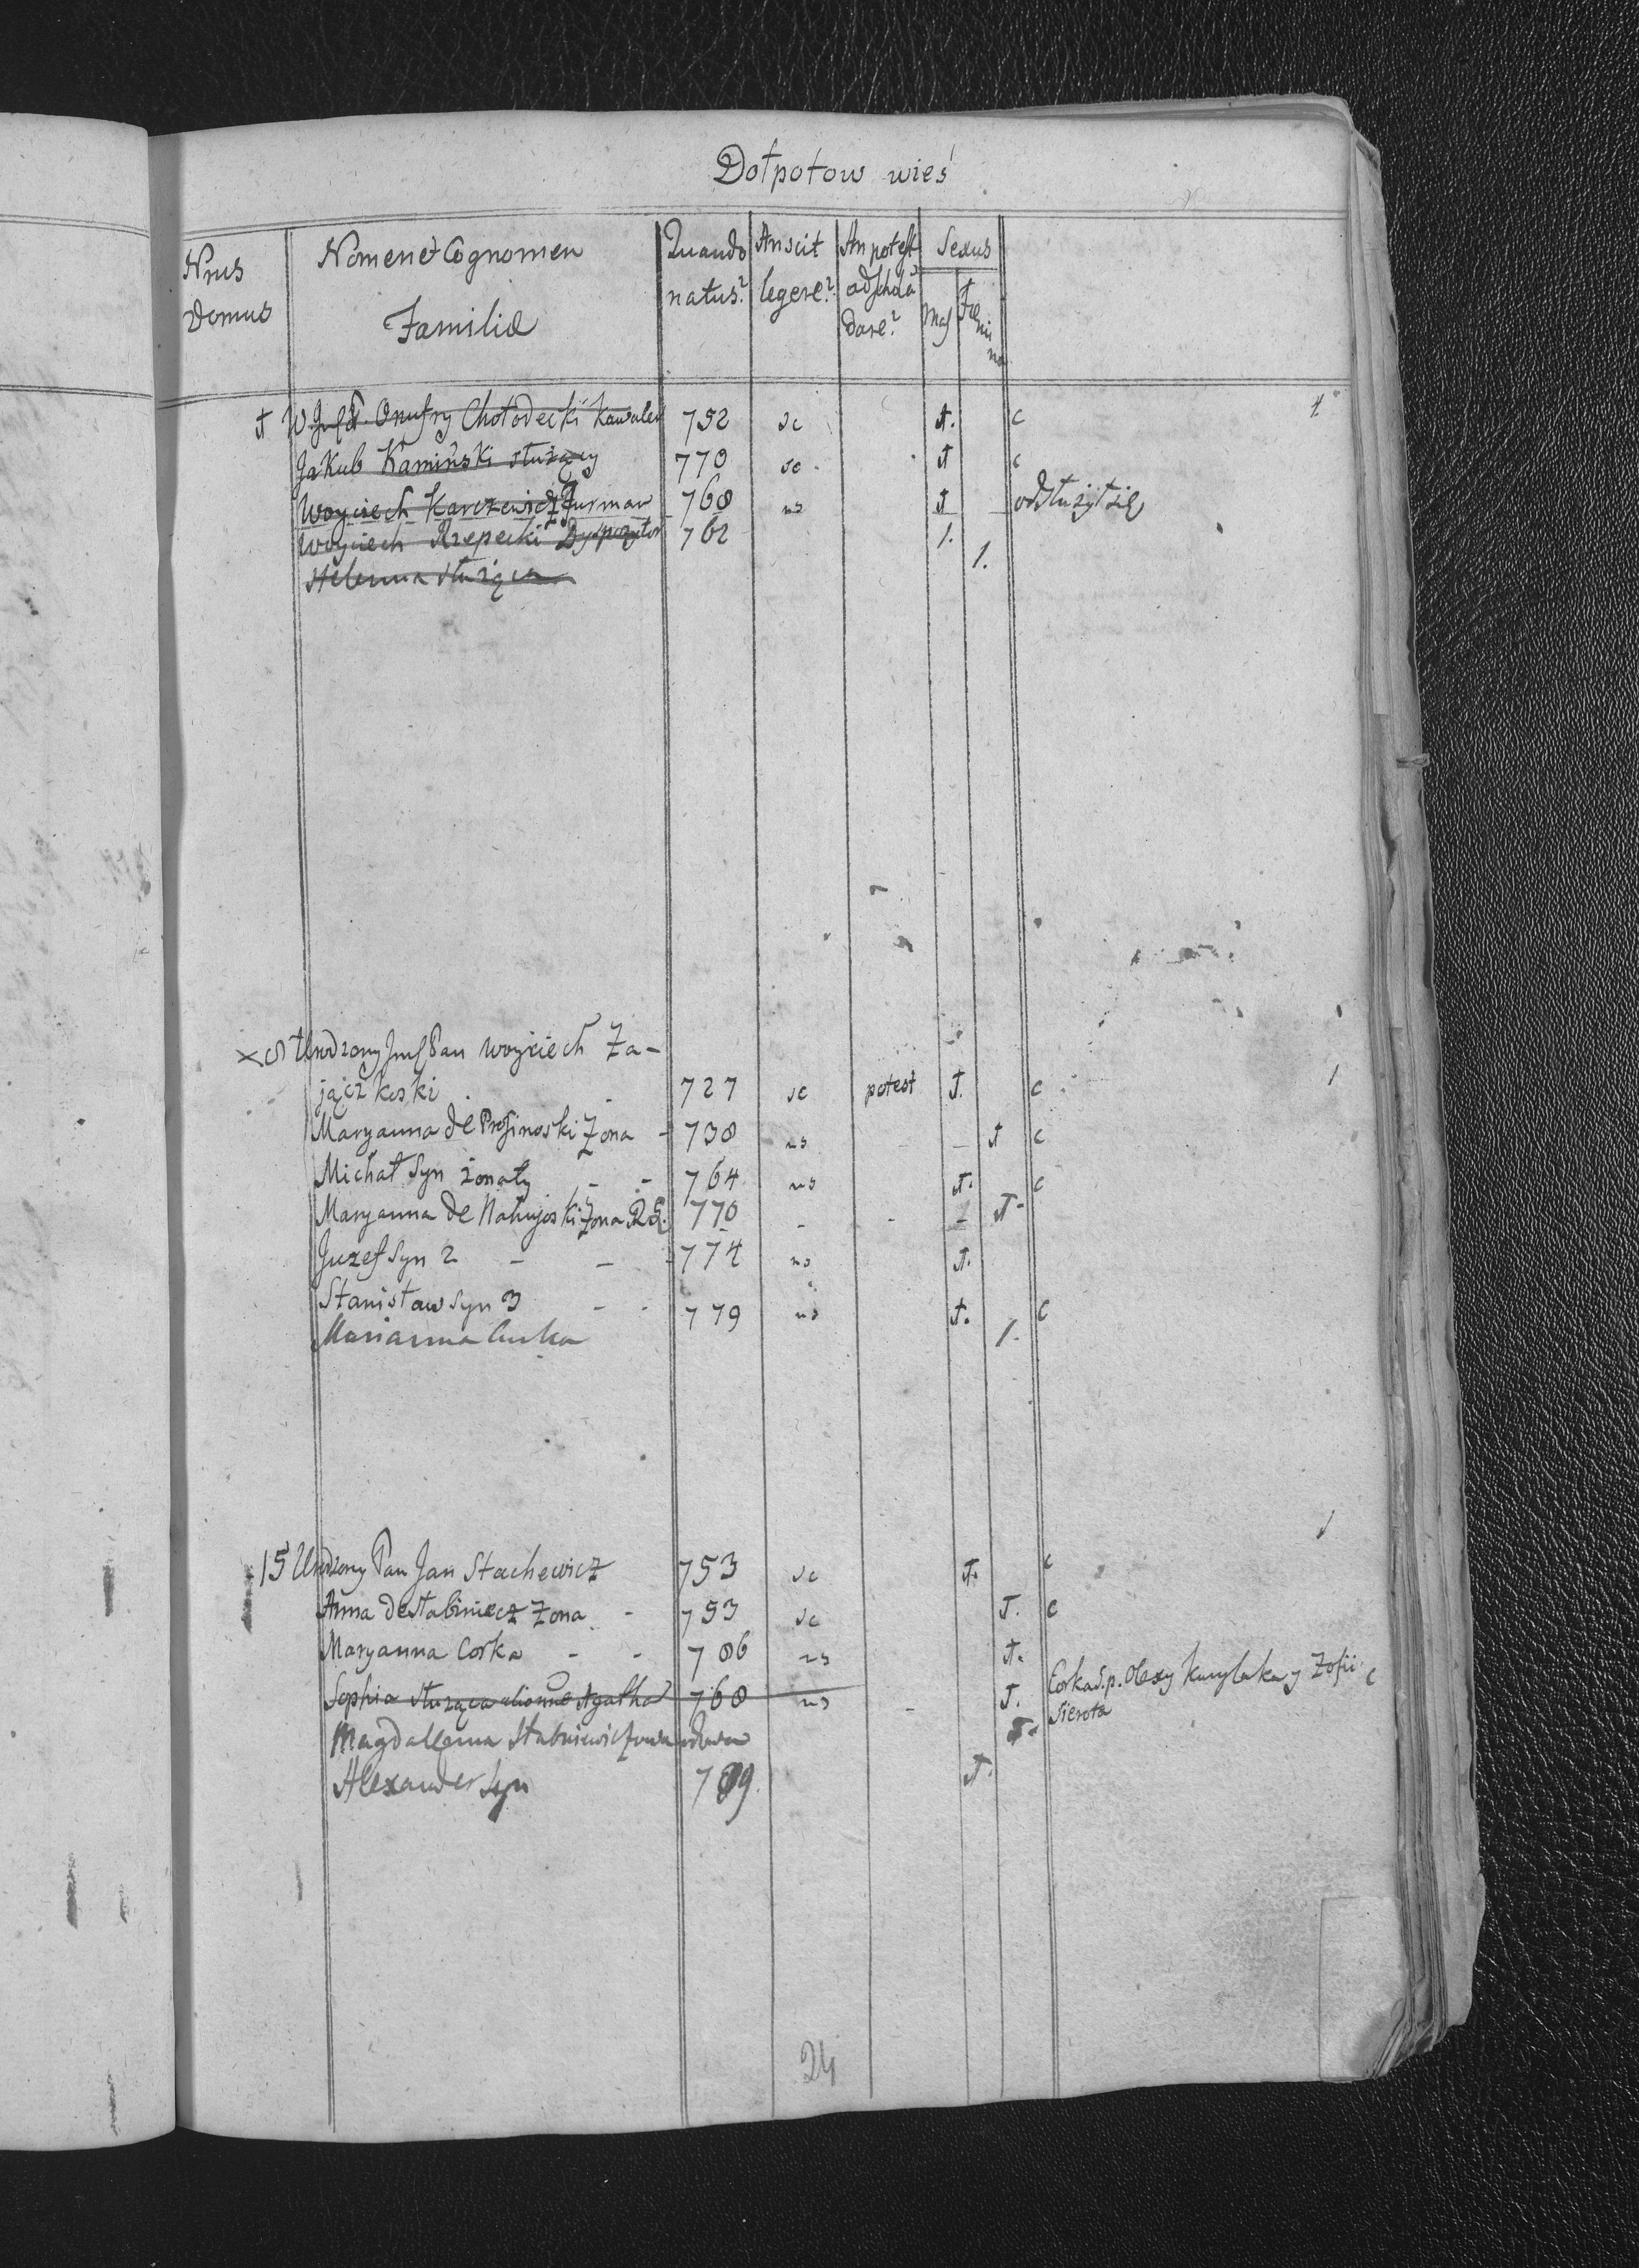 Dołpotow wieś
Nrus Domus
Nomen et Cognomen Familiæ
Quando natus?
An scit legere?
An potest ad schola dare?
Sexus
Mas
Fæmina
Onufry Chołodecki Kawaler 752 sc 1. c
Jakub Kamiński służący 770 sc 1 c
Woyciech Karczewicz Furman 768 ns 1 odsłużył się
Woyciech Rzepecki Dyspozytor 762 1.
Helenna służąca 1.
Urodzony Jmſ Pan Woyciech Za-
jączkoski 727 sc potest 1. c
Maryanna de Prosinoski Zona - 738 ns 1 c
Michał Syn żonaty - - 764 ns 1. c
Maryanna de Nahujoski Zona 770 - - - 1-
Juzef Syn 2 - - - 774 ns 1.
Stanisław Syn 3 - - 779 ns 1. c
Marianna Curka 1.
15 Urodzony Pan Jan Stachewicz 753 sc 1. c
Anna de Stabiniecz Zona - 753 sc 1. c
Maryanna Corka - - 786 ns 1.
Sophia służąca Agatha 768 ns - 1. Corka s.p. Olexy Kurylaka y Zofii c
Sierota
Magdallenna Stabniewiczowa wdowa 1.
Alexander Syn 789. 1.
24